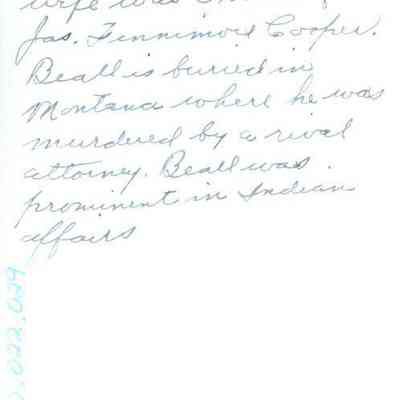 wife was
Jas. Fennimore Cooper.
Beall is buried in
Montana where he was
murdered by a rival
attorney. Beall was
prominent in Indian
affairs
.022.029